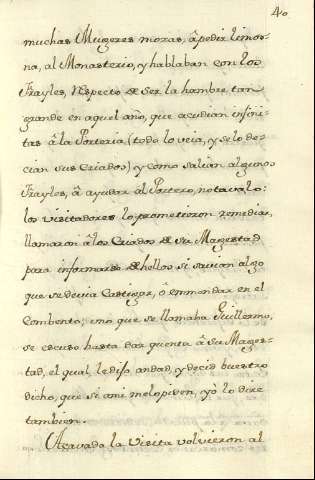 40
muchas Mugeres mozas, â pedir limos-
na, al Monasterio, y hablaban con los
Frayles, respecto de ser la hambre tan
grande en aquel año, que acudian infini-
tas â la Porteria, (todo lo veia, y se lo de-
cian sus Criados) y como salian algunos
Frayles, â ayudar al Portero, notavalo:
los visitadores lo prometieron remediar,
llamaron â los Criados de su Magestad
para informarse dellos si savian algo
que se devia Castigar, ô emmendar en el
Combento; uno que se llamaba Guillermo,
se escuso hasta dar quenta â su Mages-
tad, el qual, le dijo andad, y decid buestro
dicho, que si ami melo piden, yò lo dire
tambien.
Acavada la Visita volvieron al